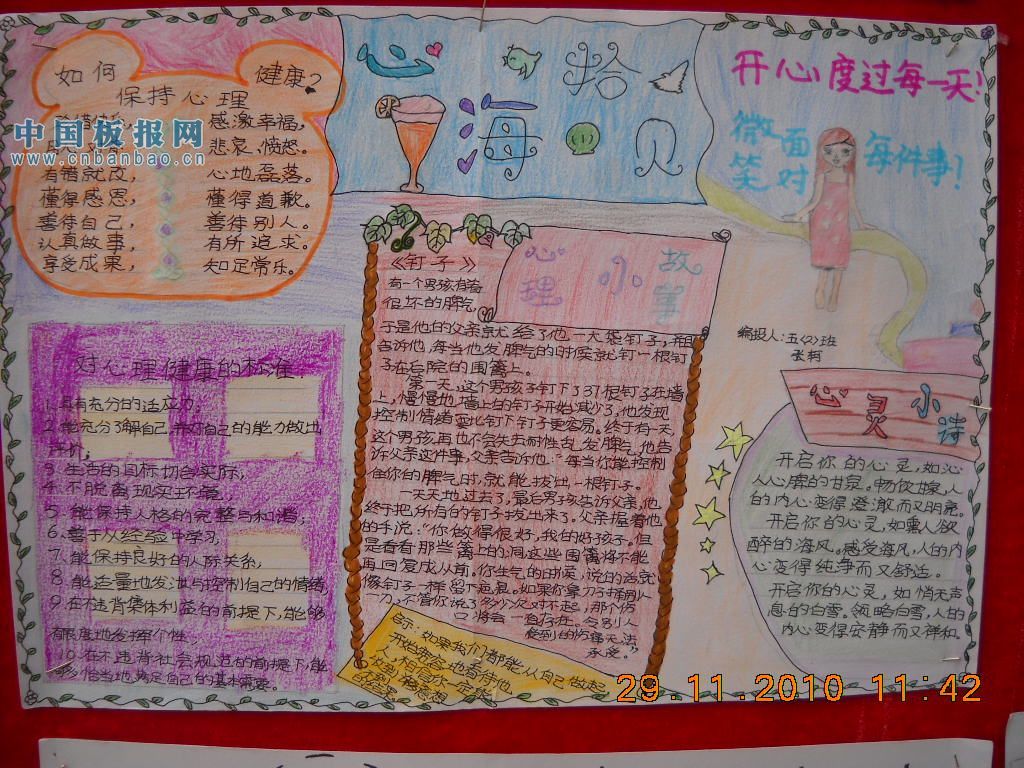 如何
健康?
保持心理
感激幸福,
悲哀,愤怒。
有错就改,
心地磊落。
懂得感恩,
懂得道歉。
善待自己,
善待别人。
认真做事,
有所追求。
享受成果,
知足常乐。
中国板报网
www.cnbanbao.cn
心
拾
海
贝
开心度过每一天!
微笑
面对
每件事!
编报人:五(2)班
对心理健康的标准:
1.具有充分的适应力;
2.能充分了解自己,并对自己的能力做出
评价;
3.生活的目标切合实际;
4.不脱离现实环境;
5.能保持人格的完整与和谐;
6.善于从经验中学习;
7.能保持良好的人际关系;
8.能适量地发泄与控制自己的情绪
9.在不违背集体利益的前提下,能够
有限度地发挥个性
10.在不违背社会规范的前提下,能
够恰当地满足自己的基本需要。
心理
小
故事
《钉子》
有一个男孩有着
很坏的脾气,
于是他的父亲就给了他一大袋钉子,
告诉他,每当他发脾气的时候就钉一根钉
子在后院的围篱上。
第一天,这个男孩子钉下了37根钉子在墙
上,慢慢地,墙上的钉子开始减少了,他发现
控制情绪要比钉下钉子更容易。终于有一天
这个男孩,再也不会失去耐性,乱发脾气,他告
诉父亲这件事,父亲告诉他:“每当你能控制
住你的脾气时,就能拔出一根钉子。
一天天地过去了,最后男孩告诉父亲,他
终于把所有的钉子拔出来了。父亲握着他
的手说:“你做得很好,我的好孩子。但
是看看那些篱上的洞,这些围篱将不能
再回复成从前。你生气的时候,说的话就
像钉子一样留下疤痕。如果你拿刀子捅别人
一刀,不管你说了多少次对不起,那个伤
口将会一直存在。令别人
感到的伤痛无法
承受。”
启示:如果我们都能从自己做起
开始宽容地看待他
人,相信你一定能
收到
心灵
小诗
开启你的心灵,如沁
人心脾的甘泉。畅饮甘泉,人
的内心变得澄澈而又明亮。
开启你的心灵,如熏人欲
醉的海风。感受海风,人的内
心变得纯净而又舒适。
开启你的心灵,如悄无声
息的白雪。领略白雪,人的
内心变得安静而又祥和。
29.11.2010 11:42